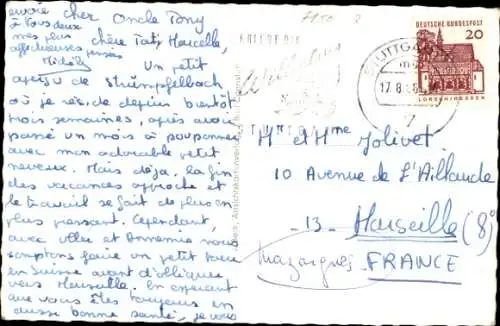 encore cher Oncle Tony
à tous deux
mes plus
affectueuses pensées
chère Tata Marcelle,
Un petit
aperçu de Strümpfelbach
où je réside depuis bientôt
trois semaines, après avoir
passé un mois à pouponner
avec mon adorable petit
neveux. Mais déjà, la fin
des vacances approche et
le travail se fait de plus en
plus pressant. Cependant,
avec Ulla et Annemie nous
comptons faire un petit tour
en Suisse avant d'obliquer
vers Marseille. En espérant
que vous êtes toujours en
aussi bonne santé, je vous
7150 2
STUTTGART
17.8.
7
DEUTSCHE BUNDESPOST
20
LORSCH/HESSEN
M et Mme Jolivet
10 Avenue de L'Aillaude
-13- Marseille (8)
Mazargues
FRANCE